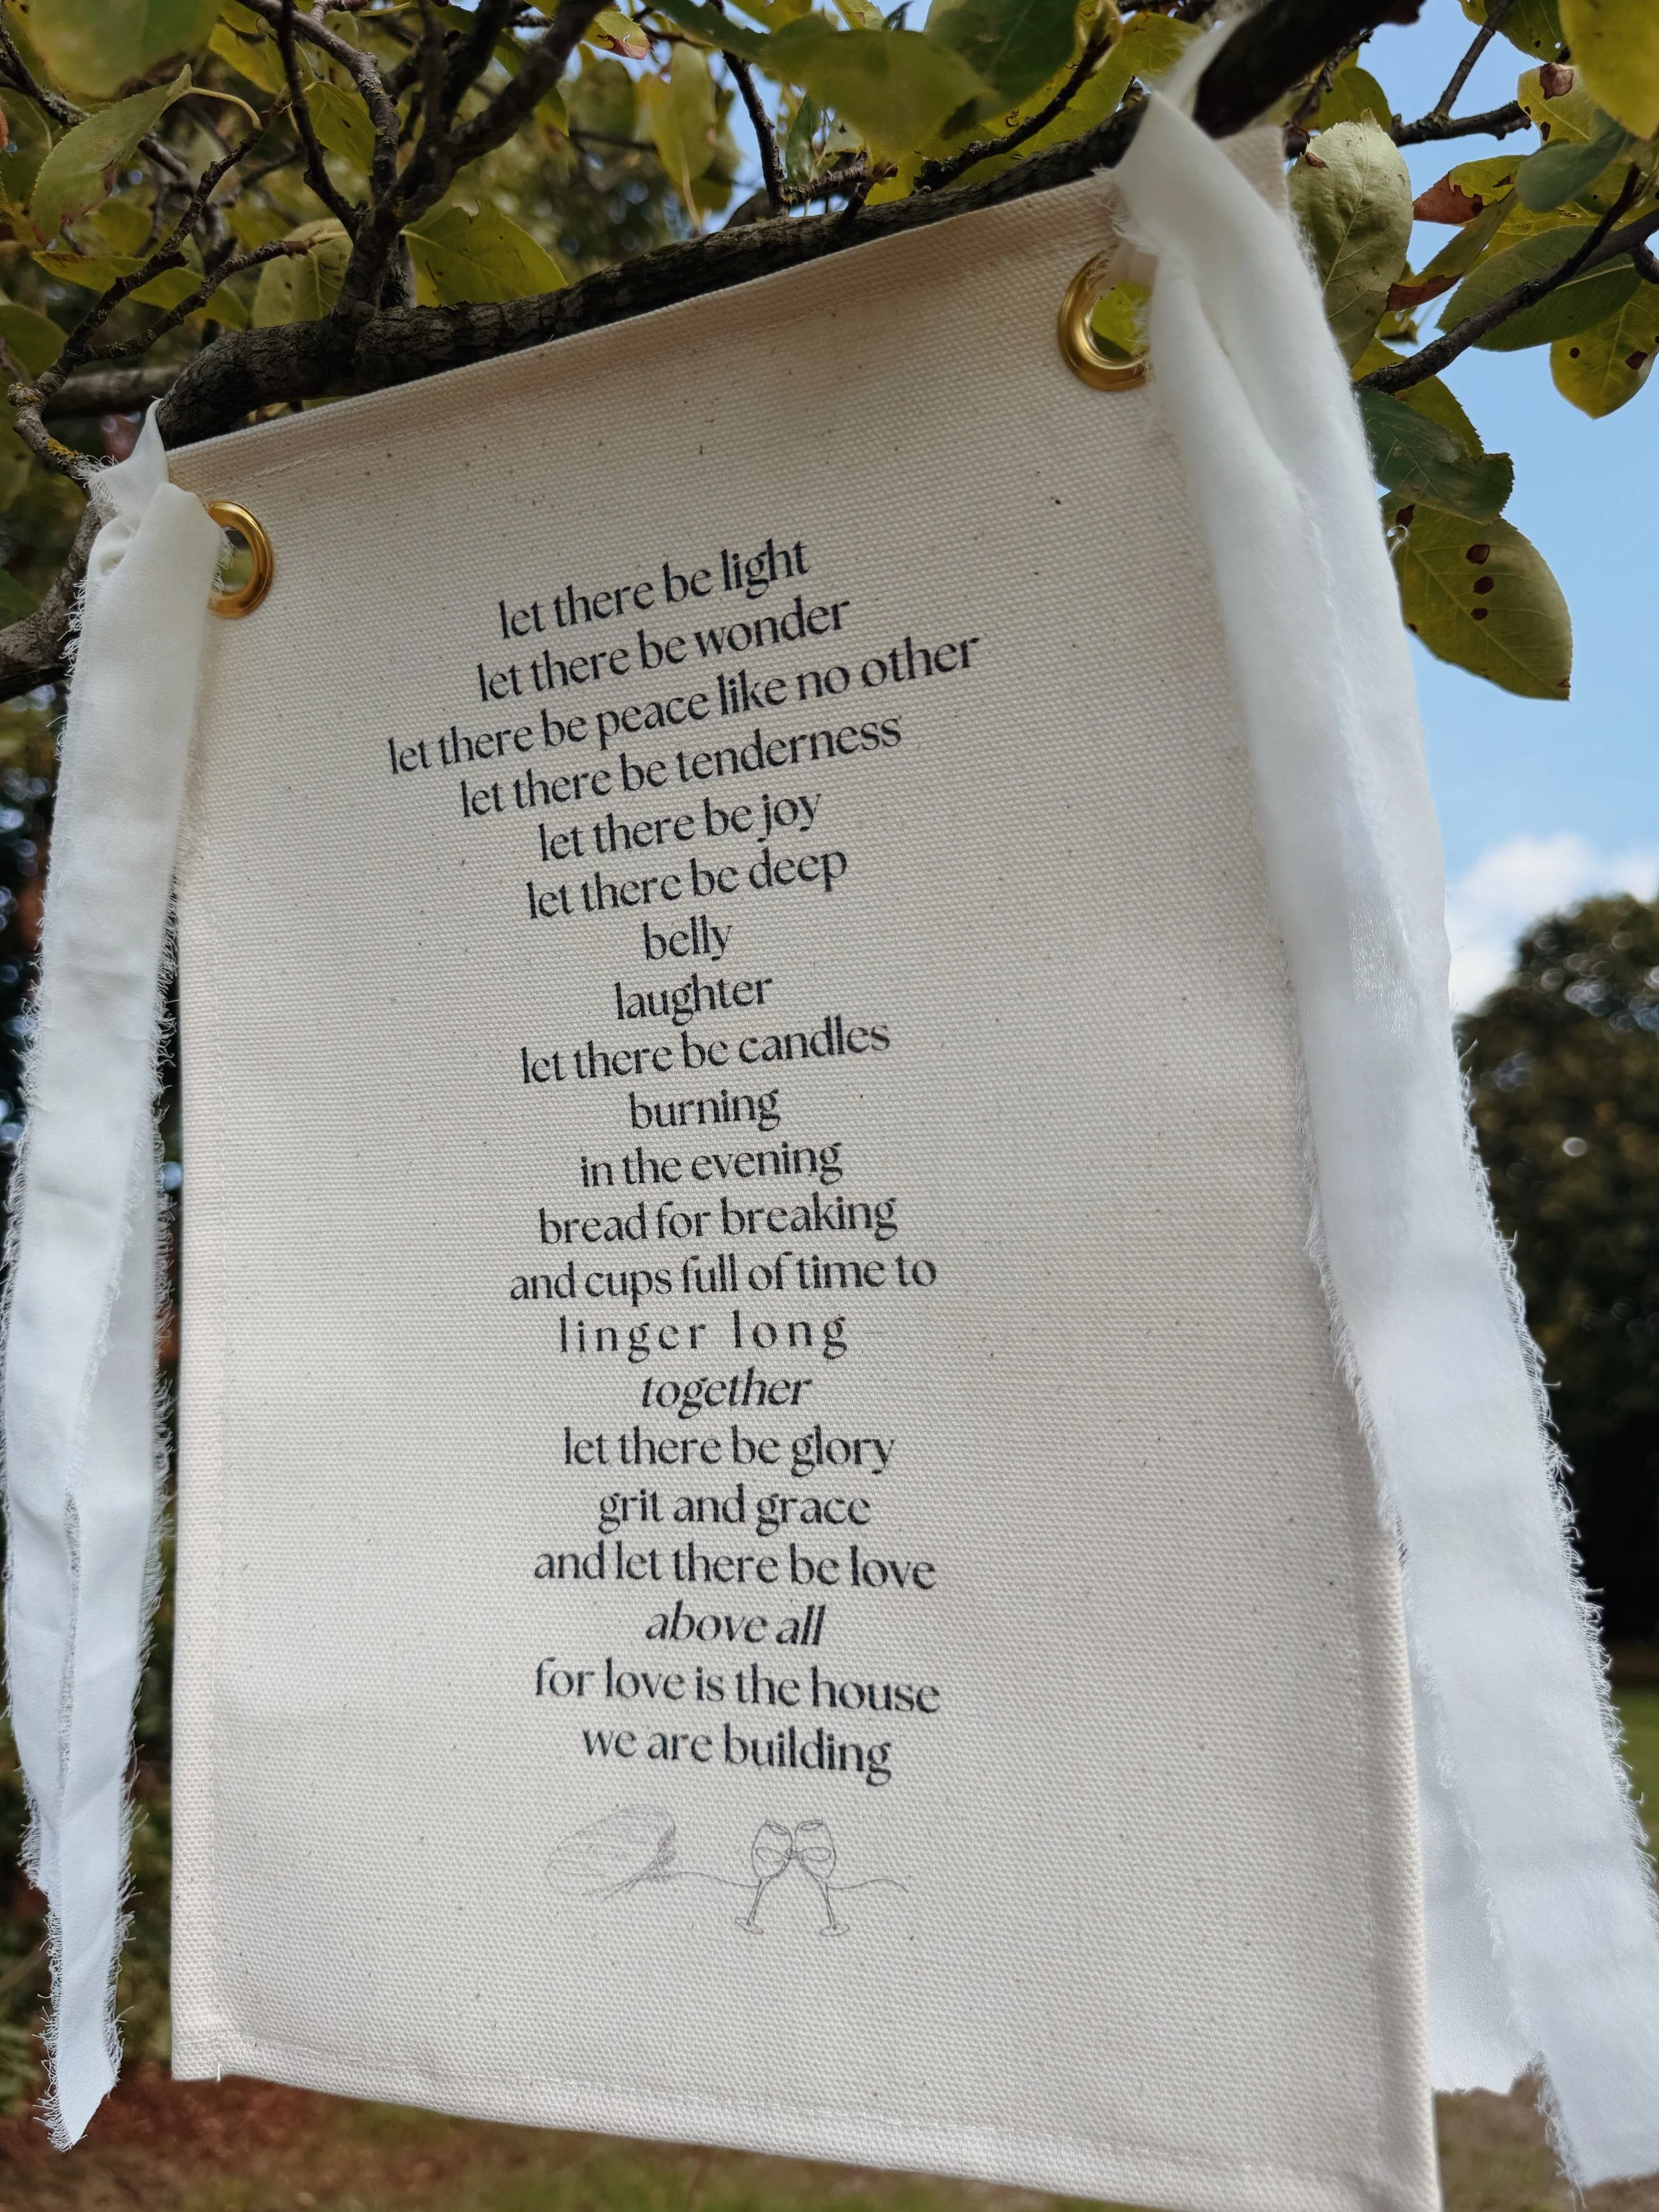 let there be light
let there be wonder
let there be peace like no other
let there be tenderness
let there be joy
let there be deep
belly
laughter
let there be candles
burning
in the evening
bread for breaking
and cups full of time to
linger long
together
let there be glory
grit and grace
and let there be love
above all
for love is the house
we are building